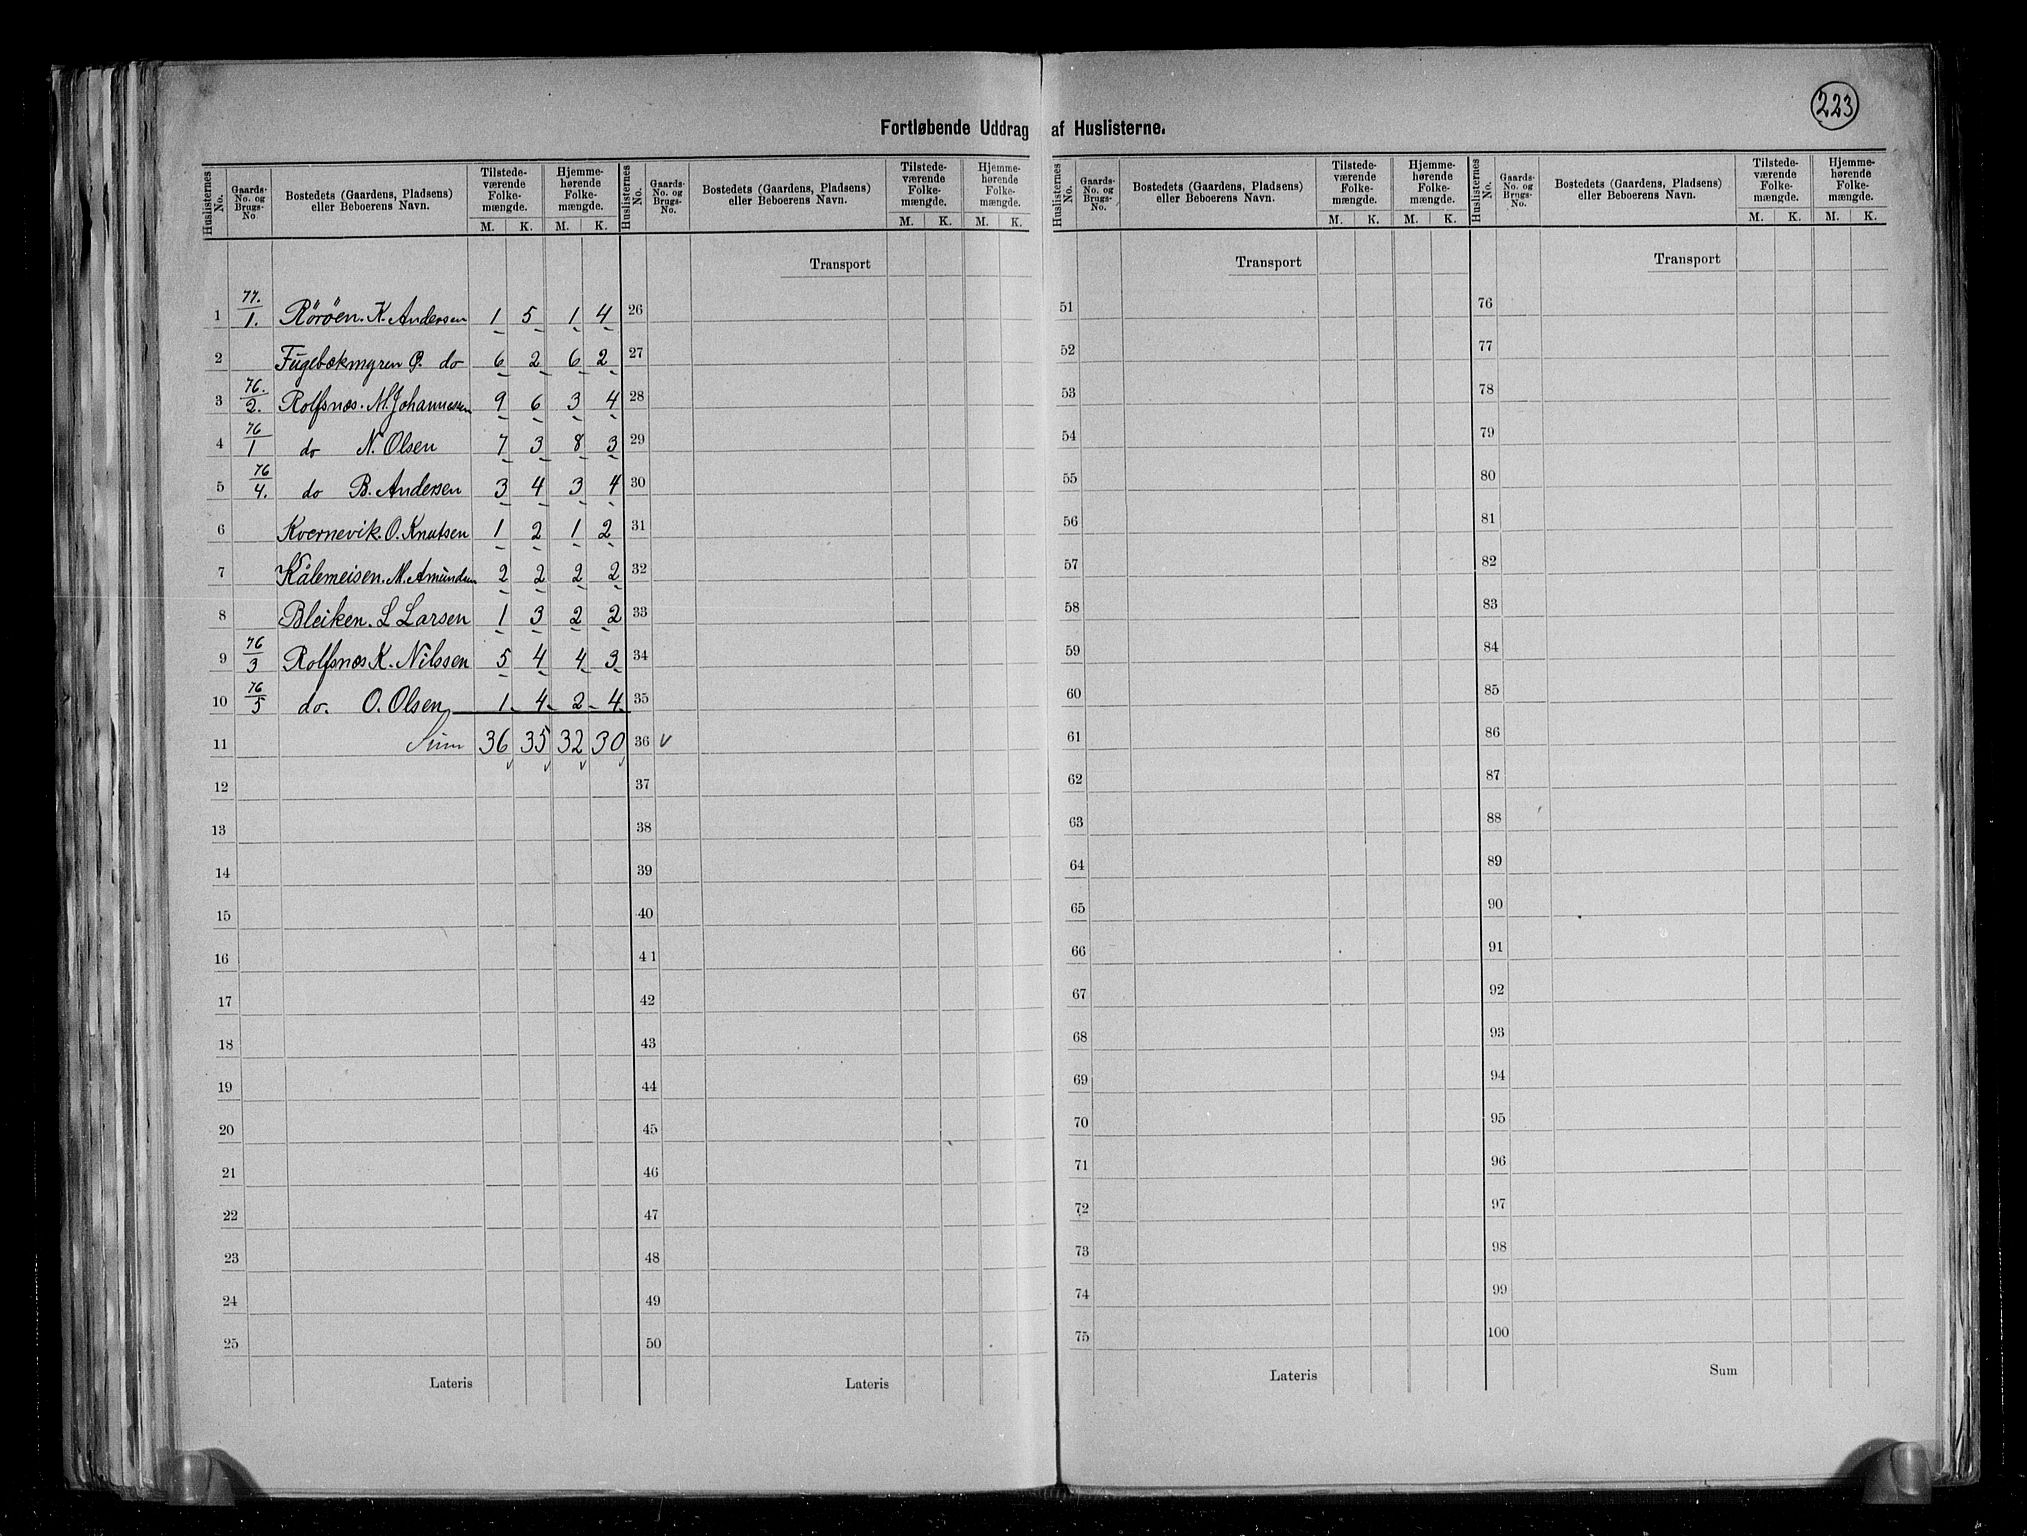 223
Fortløbende Uddrag af Huslisterne.
Huslisternes No. | Gaards-No. og Brugs-No | Bostedets (Gaardens, Pladsens) eller Beboerens Navn. | Tilstedeværende Folkemængde. M. K. | Hjemmehørende Folkemængde. M. K.
Huslisternes No. | Gaards-No. og Brugs-No. | Bostedets (Gaardens, Pladsens) eller Beboerens Navn. | Tilstedeværende Folkemængde. M. K. | Hjemmehørende Folkemængde. M. K.
Huslisternes No. | Gaards-No. og Brugs-No. | Bostedets (Gaardens, Pladsens) eller Beboerens Navn. | Tilstedeværende Folkemængde. M. K. | Hjemmehørende Folkemængde. M. K.
Huslisternes No. | Gaards-No. og Brugs-No. | Bostedets (Gaardens, Pladsens) eller Beboerens Navn. | Tilstedeværende Folkemængde. M. K. | Hjemmehørende Folkemængde. M. K.
1 77./1. Röröen. K. Andersen 1 5 1 4
2 Fugebækmyren do 6 2 6 2
3 76./2. Rolfsnæs. M. Johannessen 9 6 3 4
4 76/1 do N. Olsen 7 3 8 3
5 76/4. do B. Andersen 3 4 3 4
6 Kvernevik. O. Knutsen 1 2 1 2
7 Kålemeisen. M. Amundsen 2 2 2 2
8 Bleiken. L Larsen 1 3 2 2
9 76/3 Rolfsnæs K. Nilssen 5 4 4 3
10 76/5 do. O. Olsen 1 4 2 4
11 Sum 36 35 32 30
12
13
14
15
16
17
18
19
20
21
22
23
24
25
Lateris
Transport
26
27
28
29
30
31
32
33
34
35
36 v
37
38
39
40
41
42
43
44
45
46
47
48
49
50
Lateris
Transport
51
52
53
54
55
56
57
58
59
60
61
62
63
64
65
66
67
68
69
70
71
72
73
74
75
Lateris
Transport
76
77
78
79
80
81
82
83
84
85
86
87
88
89
90
91
92
93
94
95
96
97
98
99
100
Sum